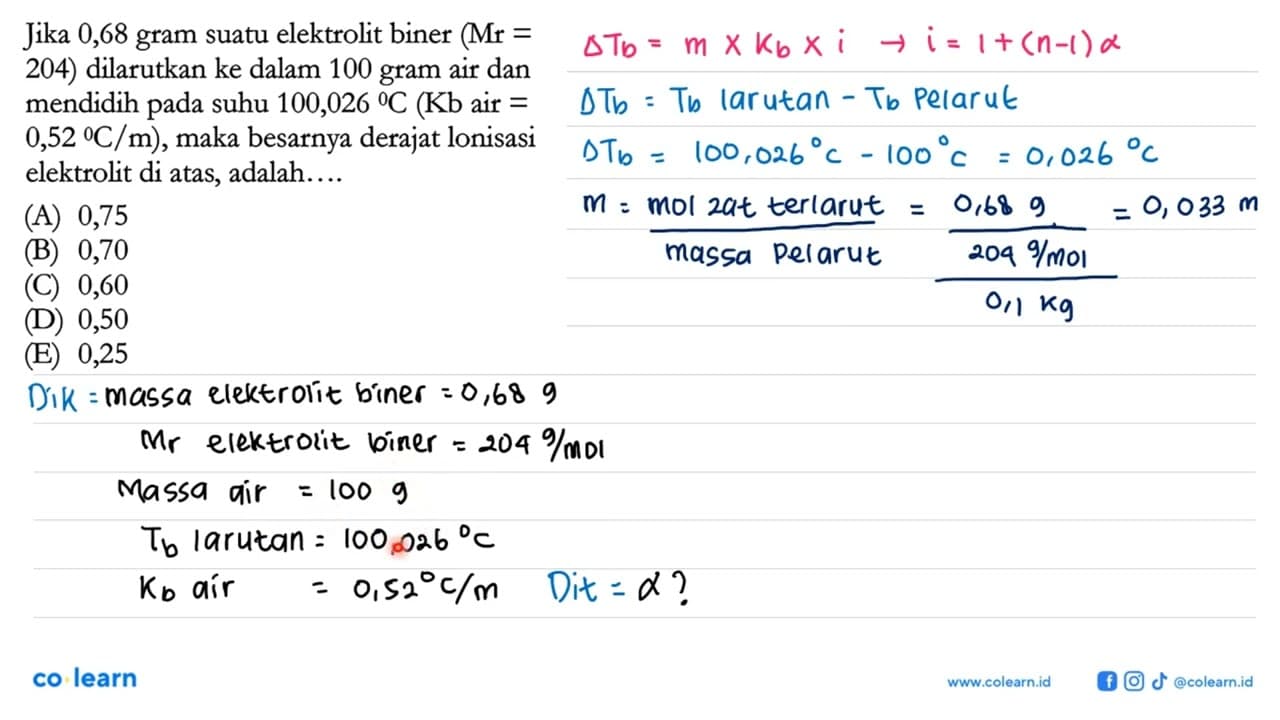 Jika 0,68 gram suatu elektrolit biner (Mr =
204) dilarutkan ke dalam 100 gram air dan
mendidih pada suhu 100,026 ⁰C (Kb air =
0,52 ⁰C/m), maka besarnya derajat lonisasi
elektrolit di atas, adalah....
(A) 0,75
(B) 0,70
(C) 0,60
(D) 0,50
(E) 0,25
ΔTb = m x Kb x i → i = 1 + (n-1)α
ΔTb = Tb larutan - Tb Pelarut
ΔTb = 100,026°C - 100°C = 0,026 °C
m = mol zat terlarut = 0,68 g = 0,033 m
massa Pelarut 204 g/mol
0,1 Kg
Dik = massa elektrolit biner = 0,68 g
Mr elektrolit biner = 204 g/mol
Massa air = 100 g
Tb larutan = 100,026 °C
Kb air = 0,52°C/m Dit = α?
co learn
www.colearn.id @colearn.id